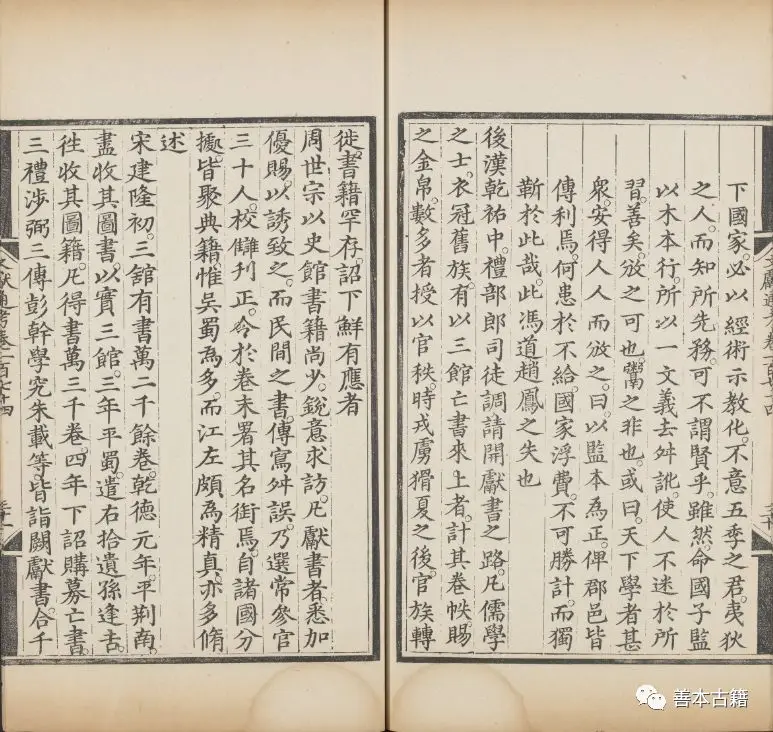 下國家必以經術示教化不意五季之君夷狄
之人而知所先務可不謂賢乎雖然命國子監
以木本行所以一文義去舛訛使人不迷於所
習善矣攽之可也鬻之非也或曰天下學者甚
衆安得人人而攽之曰以監本為正俾郡邑皆
傳利焉何患於不給國家浮費不可勝計而獨
靳於此哉此馮道趙鳳之失也
後漢乾祐中禮部郎司徒調請開獻書之路凡儒學
之士衣冠舊族有以三館亡書來上者計其卷帙賜
之金帛數多者授以官秩時戎虜猾夏之後官族轉
徙書籍罕存詔下鮮有應者
周世宗以史館書籍尚少銳意求訪凡獻書者悉加
優賜以誘致之而民間之書傳寫舛誤乃選常參官
三十人校讎刋正令於卷末署其名銜焉自諸國分
據皆聚典籍惟吳蜀為多而江左頗為精真亦多脩
述
宋建隆初三舘有書萬二千餘卷乾德元年平荆南
盡收其圖書以實三館三年平蜀遣右拾遺孫逢吉
徃收其圖籍凡得書萬三千卷四年下詔購募亡書
三禮涉弼三傳彭幹學究朱載等皆詣闕獻書合千
文獻通考卷一百七十四
善本古籍